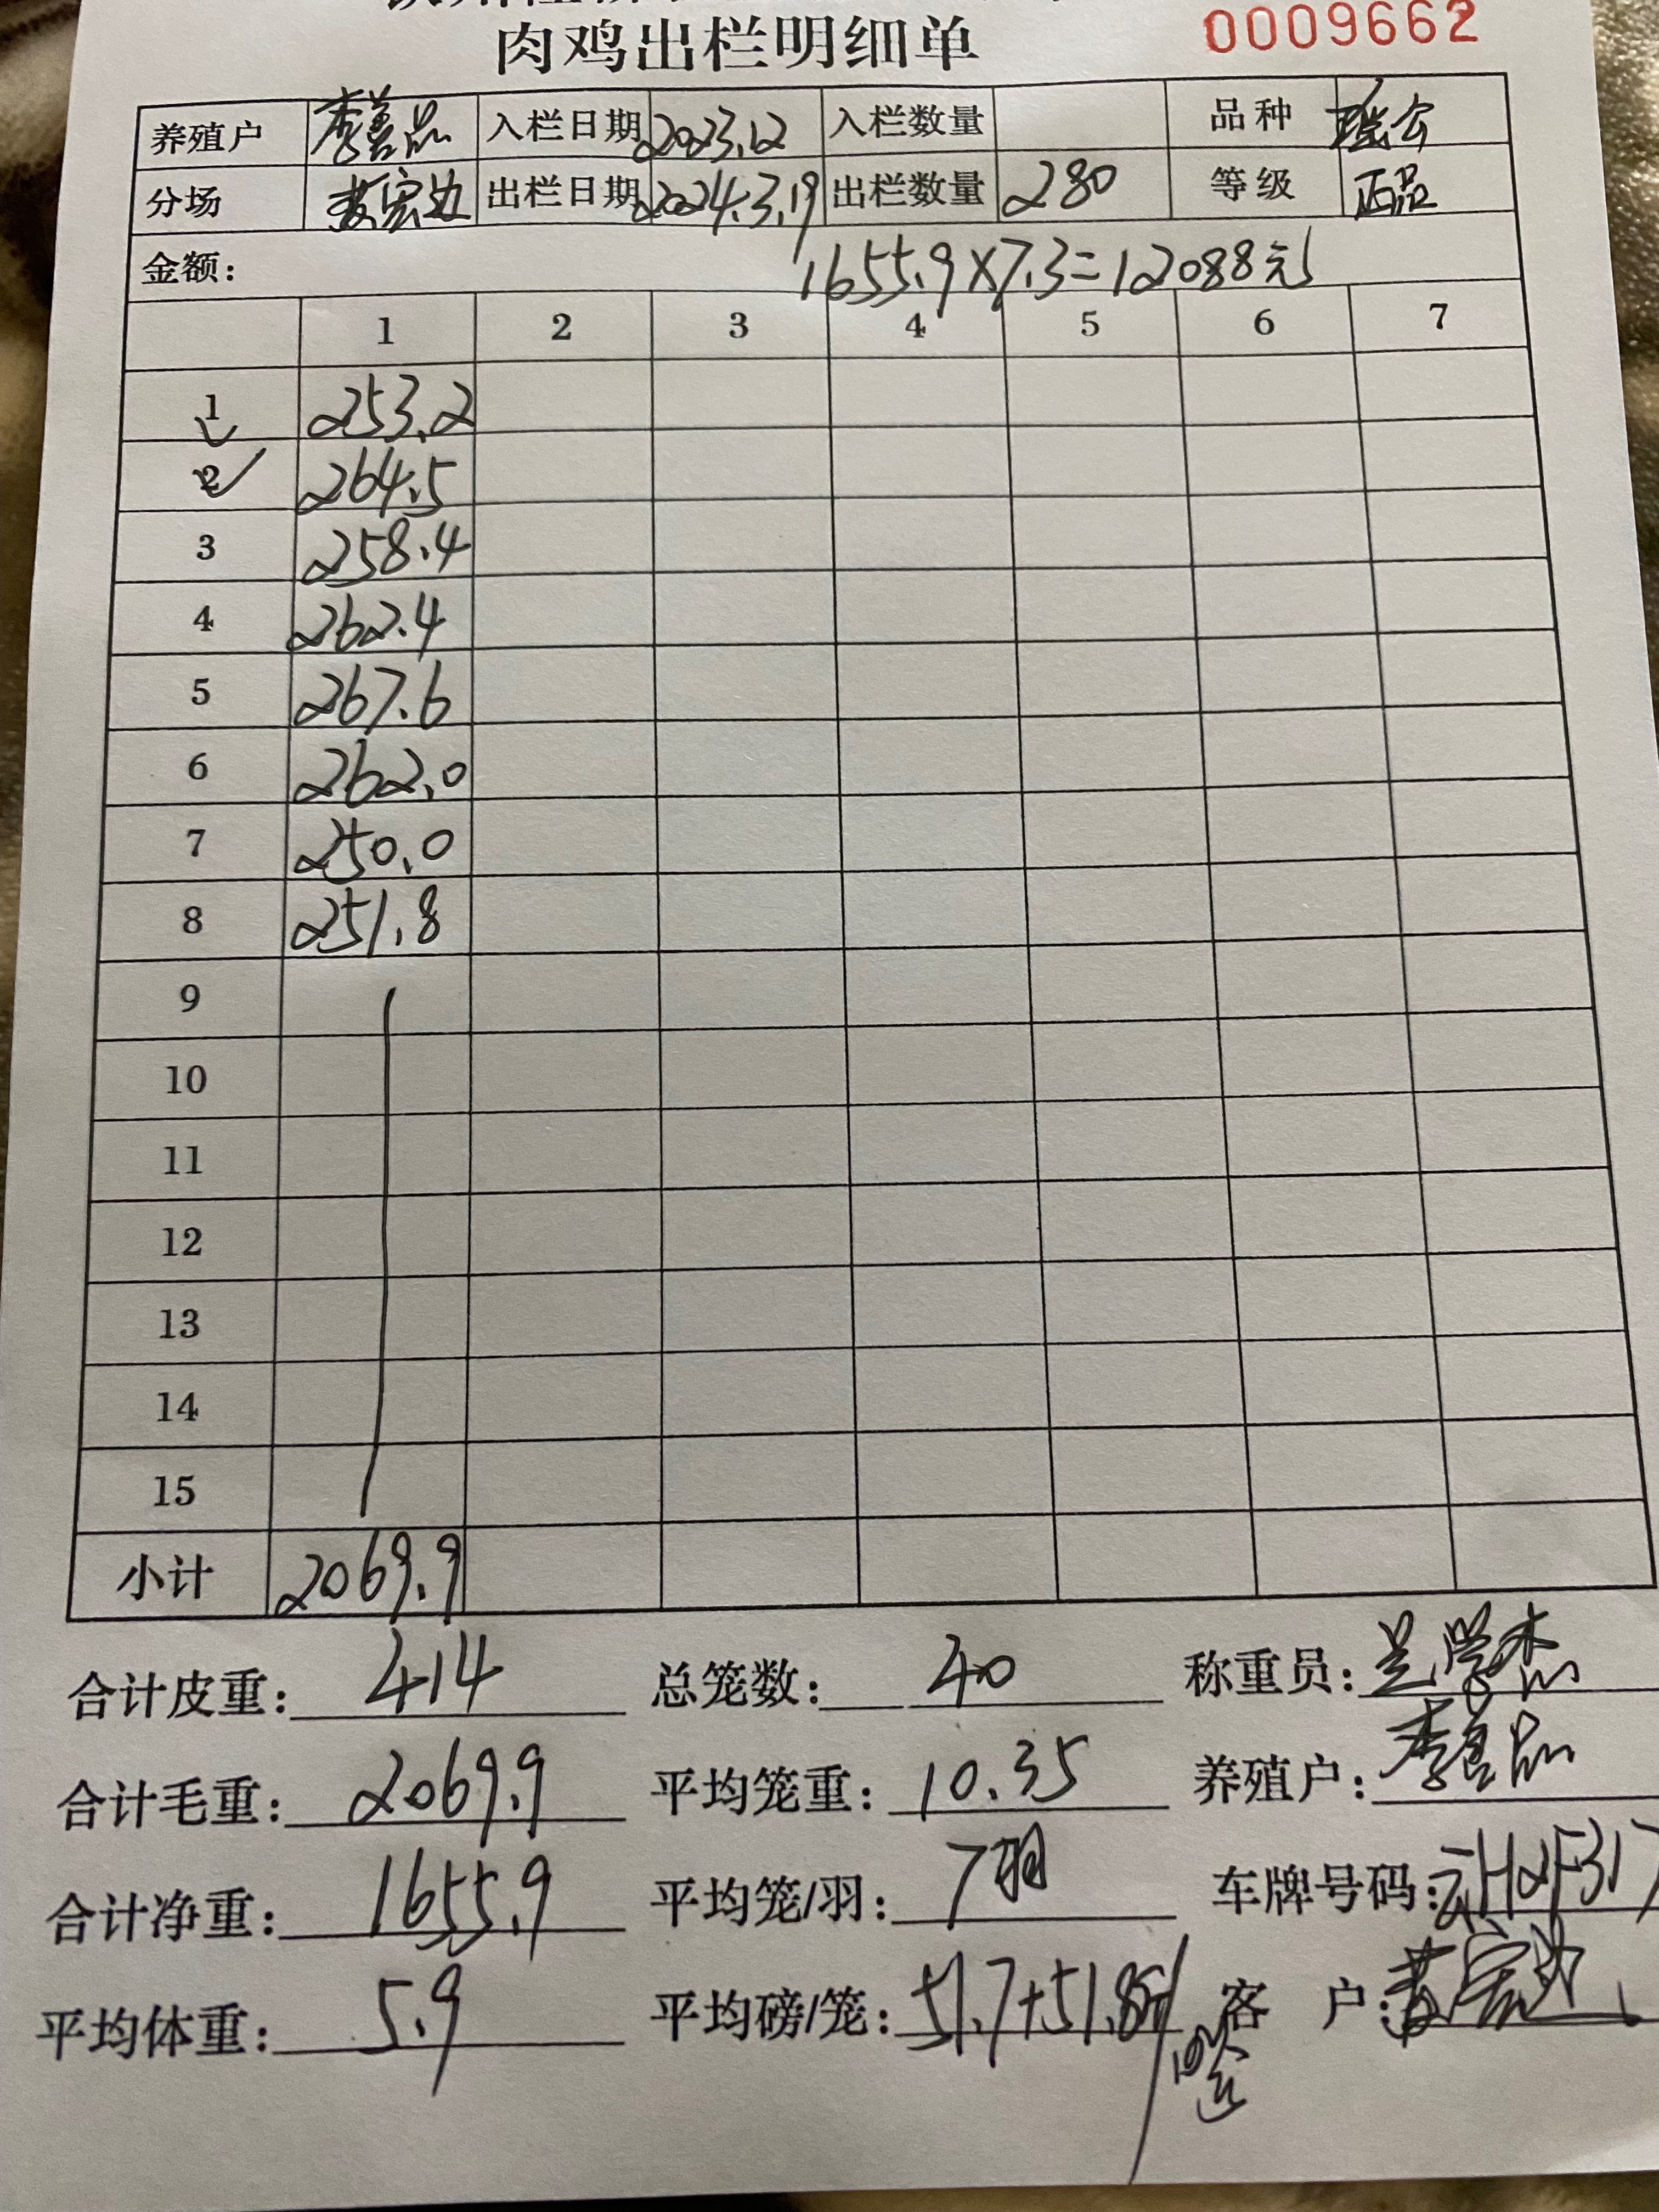 肉鸡出栏明细单 0009662
养殖户 李善品 入栏日期 2023.12 入栏数量 品种
分场 出栏日期 2024.3.19 出栏数量 280 等级 正品
金额: 1655.9×7.3=12088元
1 2 3 4 5 6 7
1 253.2
2 264.5
3 258.4
4 262.4
5 267.6
6 262.0
7 250.0
8 251.8
9
10
11
12
13
14
15
小计 2069.9
合计皮重: 414 总笼数: 40 称重员:
合计毛重: 2069.9 平均笼重: 10.35 养殖户: 李善品
合计净重: 1655.9 平均笼/羽: 7羽 车牌号码:
平均体重: 5.9 平均磅/笼: 51.7+51.8 客 户: